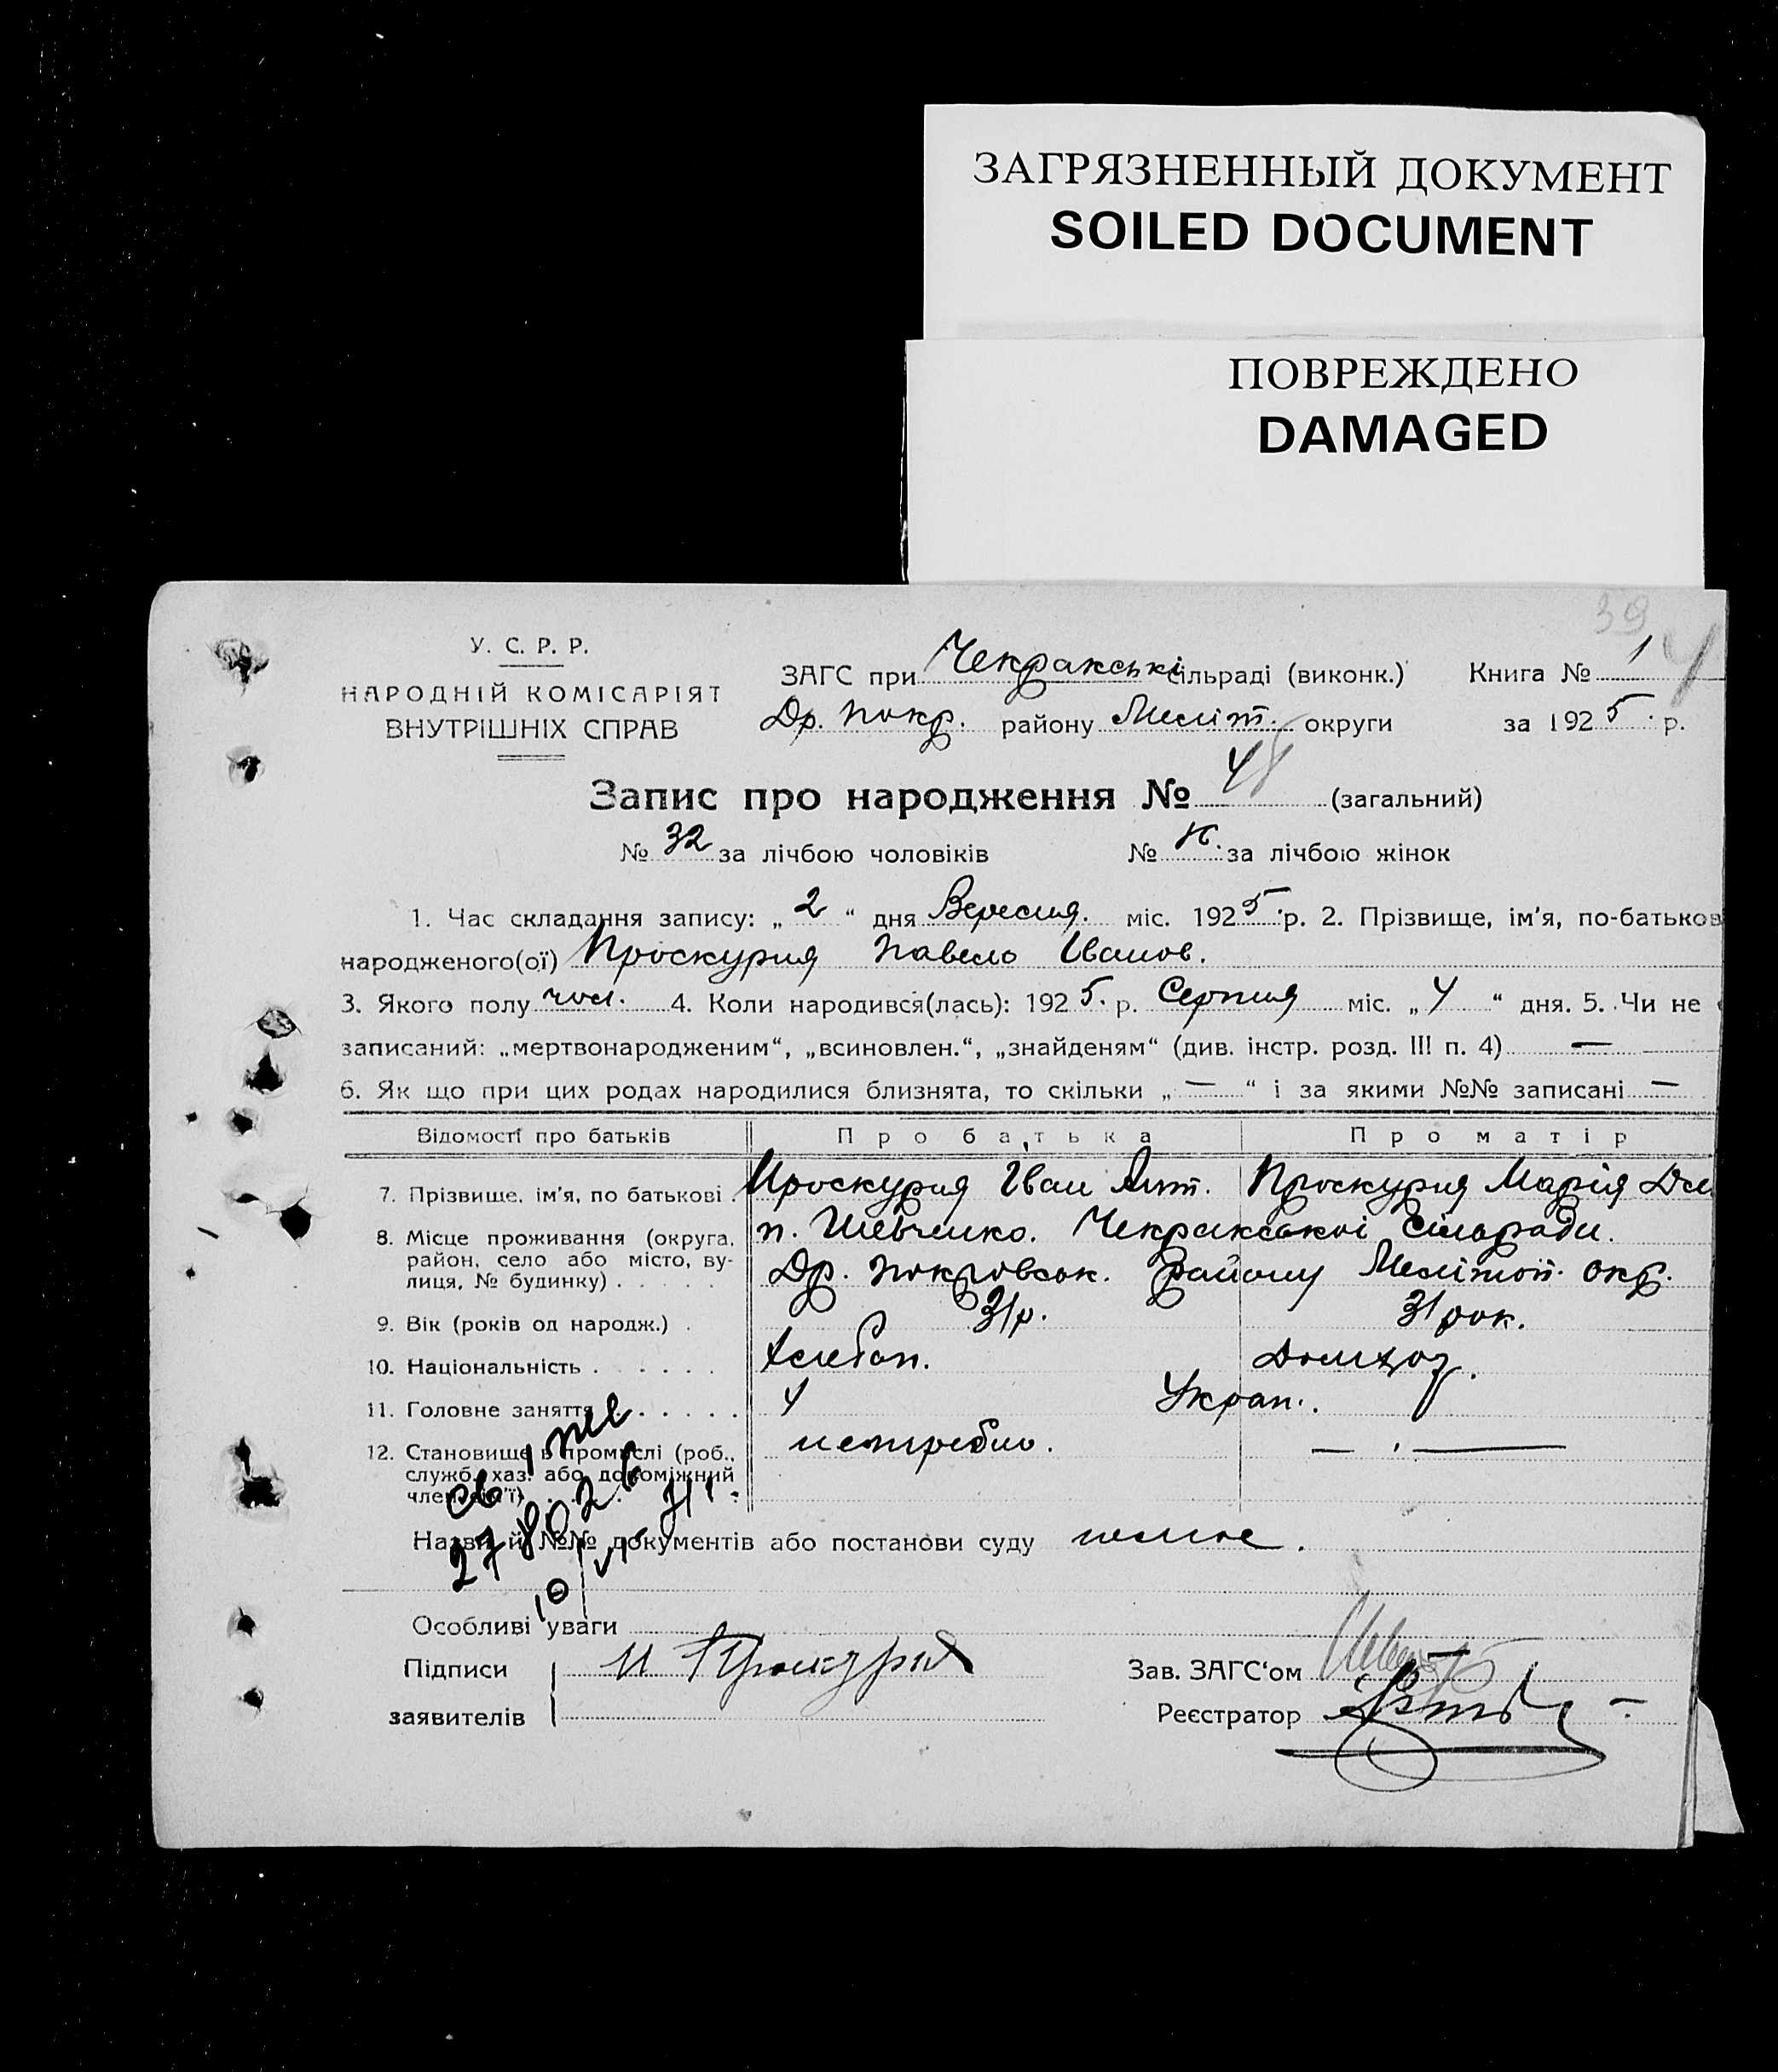 ЗАГРЯЗНЕННЫЙ ДОКУМЕНТ
SOILED DOCUMENT
ПОВРЕЖДЕНО
DAMAGED
39
У. С. Р. Р.
НАРОДНІЙ КОМІСАРІЯТ
ВНУТРІШНІХ СПРАВ
ЗАГС при Чекракські сільраді (виконк.) Книга № 1
Др. Покр. району Меліт. округи за 1925 р.
Запис про народження № (загальний)
№ 32 за лічбою чоловіків № за лічбою жінок
1. Час складання запису: „2“ дня Вересня міс. 1925 р. 2. Прізвище, ім'я, по-батьков
народженого(ої) Проскурня Павело Иванов.
3. Якого полу чол. 4. Коли народився(лась): 1925 р. Серпня міс. „4“ дня. 5. Чи не
записаний: „мертвонародженим“, „всиновлен.“, „знайденям“ (див. інстр. розд. III п. 4) —
6. Як що при цих родах народилися близнята, то скільки „—“ і за якими №№ записані —
Відомості про батьків Про батька Про матір
7. Прізвище, ім'я, по батькові Проскурня Іван Ант. Проскурня Марія
8. Місце проживання (округа, район, село або місто, вулиця, № будинку) п. Шевченко. Чекракської Сільради.
Др. Покровськ. Району Мелітоп. окр.
9. Вік (років од народж.) 31 р. 31 рок.
10. Національність Хлебоп. Домхоз.
11. Головне заняття Украп.
12. Становище в промислі (роб., служб., хаз. або допоміжний член сім'ї) —
27
Назви й №№ документів або постанови суду
Особливі уваги
Підписи И Проскурня Зав. ЗАГС'ом
заявителів Реєстратор